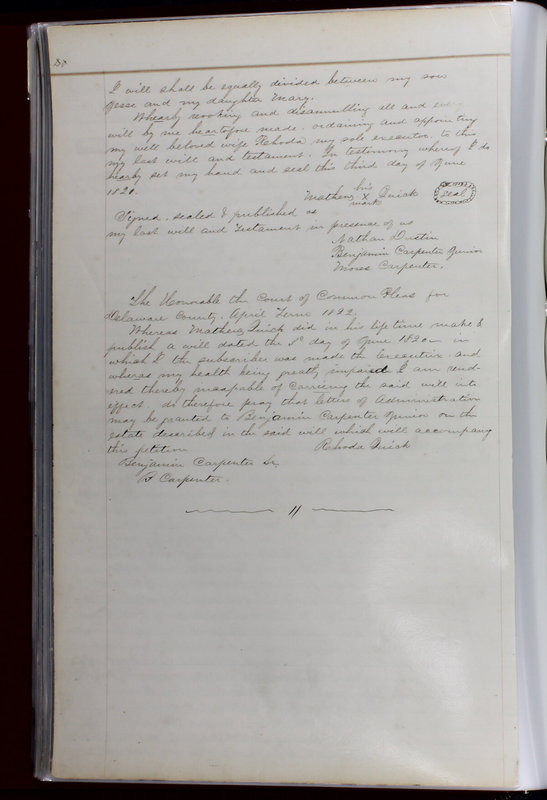 I will shall be equally divided between my son
Jesse and my daughter Mary.
Whearby revoking and disannulling all and every
will by me heartofore made. ordaining and appointing
my well beloved wife Rehoda my sole executor to this
my last will and testament. In testimony whereof I do
hearby set my hand and seal this third day of June
1820.
his
Mathew X Quick Seal
mark
Signed, sealed & published as
my last will and Testament in presence of us
Nathan Dustin
Benjamin Carpenter Junior
Moses Carpenter.
The Honourable the Court of Common Pleas for
Delaware County. April Term 1822.
Whereas Mathew Quick did in his life time make &
publish a will dated the 3d day of June 1820 in
which I the subscriber was made the Executrix and
whereas my health being greatly impaired I am rend-
ered thereby incapable of Carrying the said will into
effect. do therefore pray that letters of Administration
may be granted to Benjamin Carpenter Junior on the
estate described in the said will which will accompany
this petition Rehoda Quick
Benjamin Carpenter Sr.
B Carpenter.
11